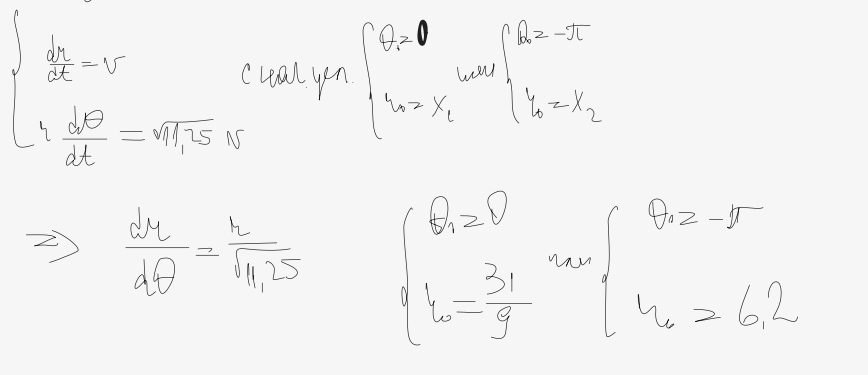 { dr/dt = v
r dθ/dt = √11,25 v
с нач. усл. { θ₀ = 0
r₀ = x₁
или { θ₀ = -π
r₀ = x₂
=> dr/dθ = r/√11,25
{ θ₀ = 0
r₀ = 31/9
или { θ₀ = -π
r₀ = 6,2